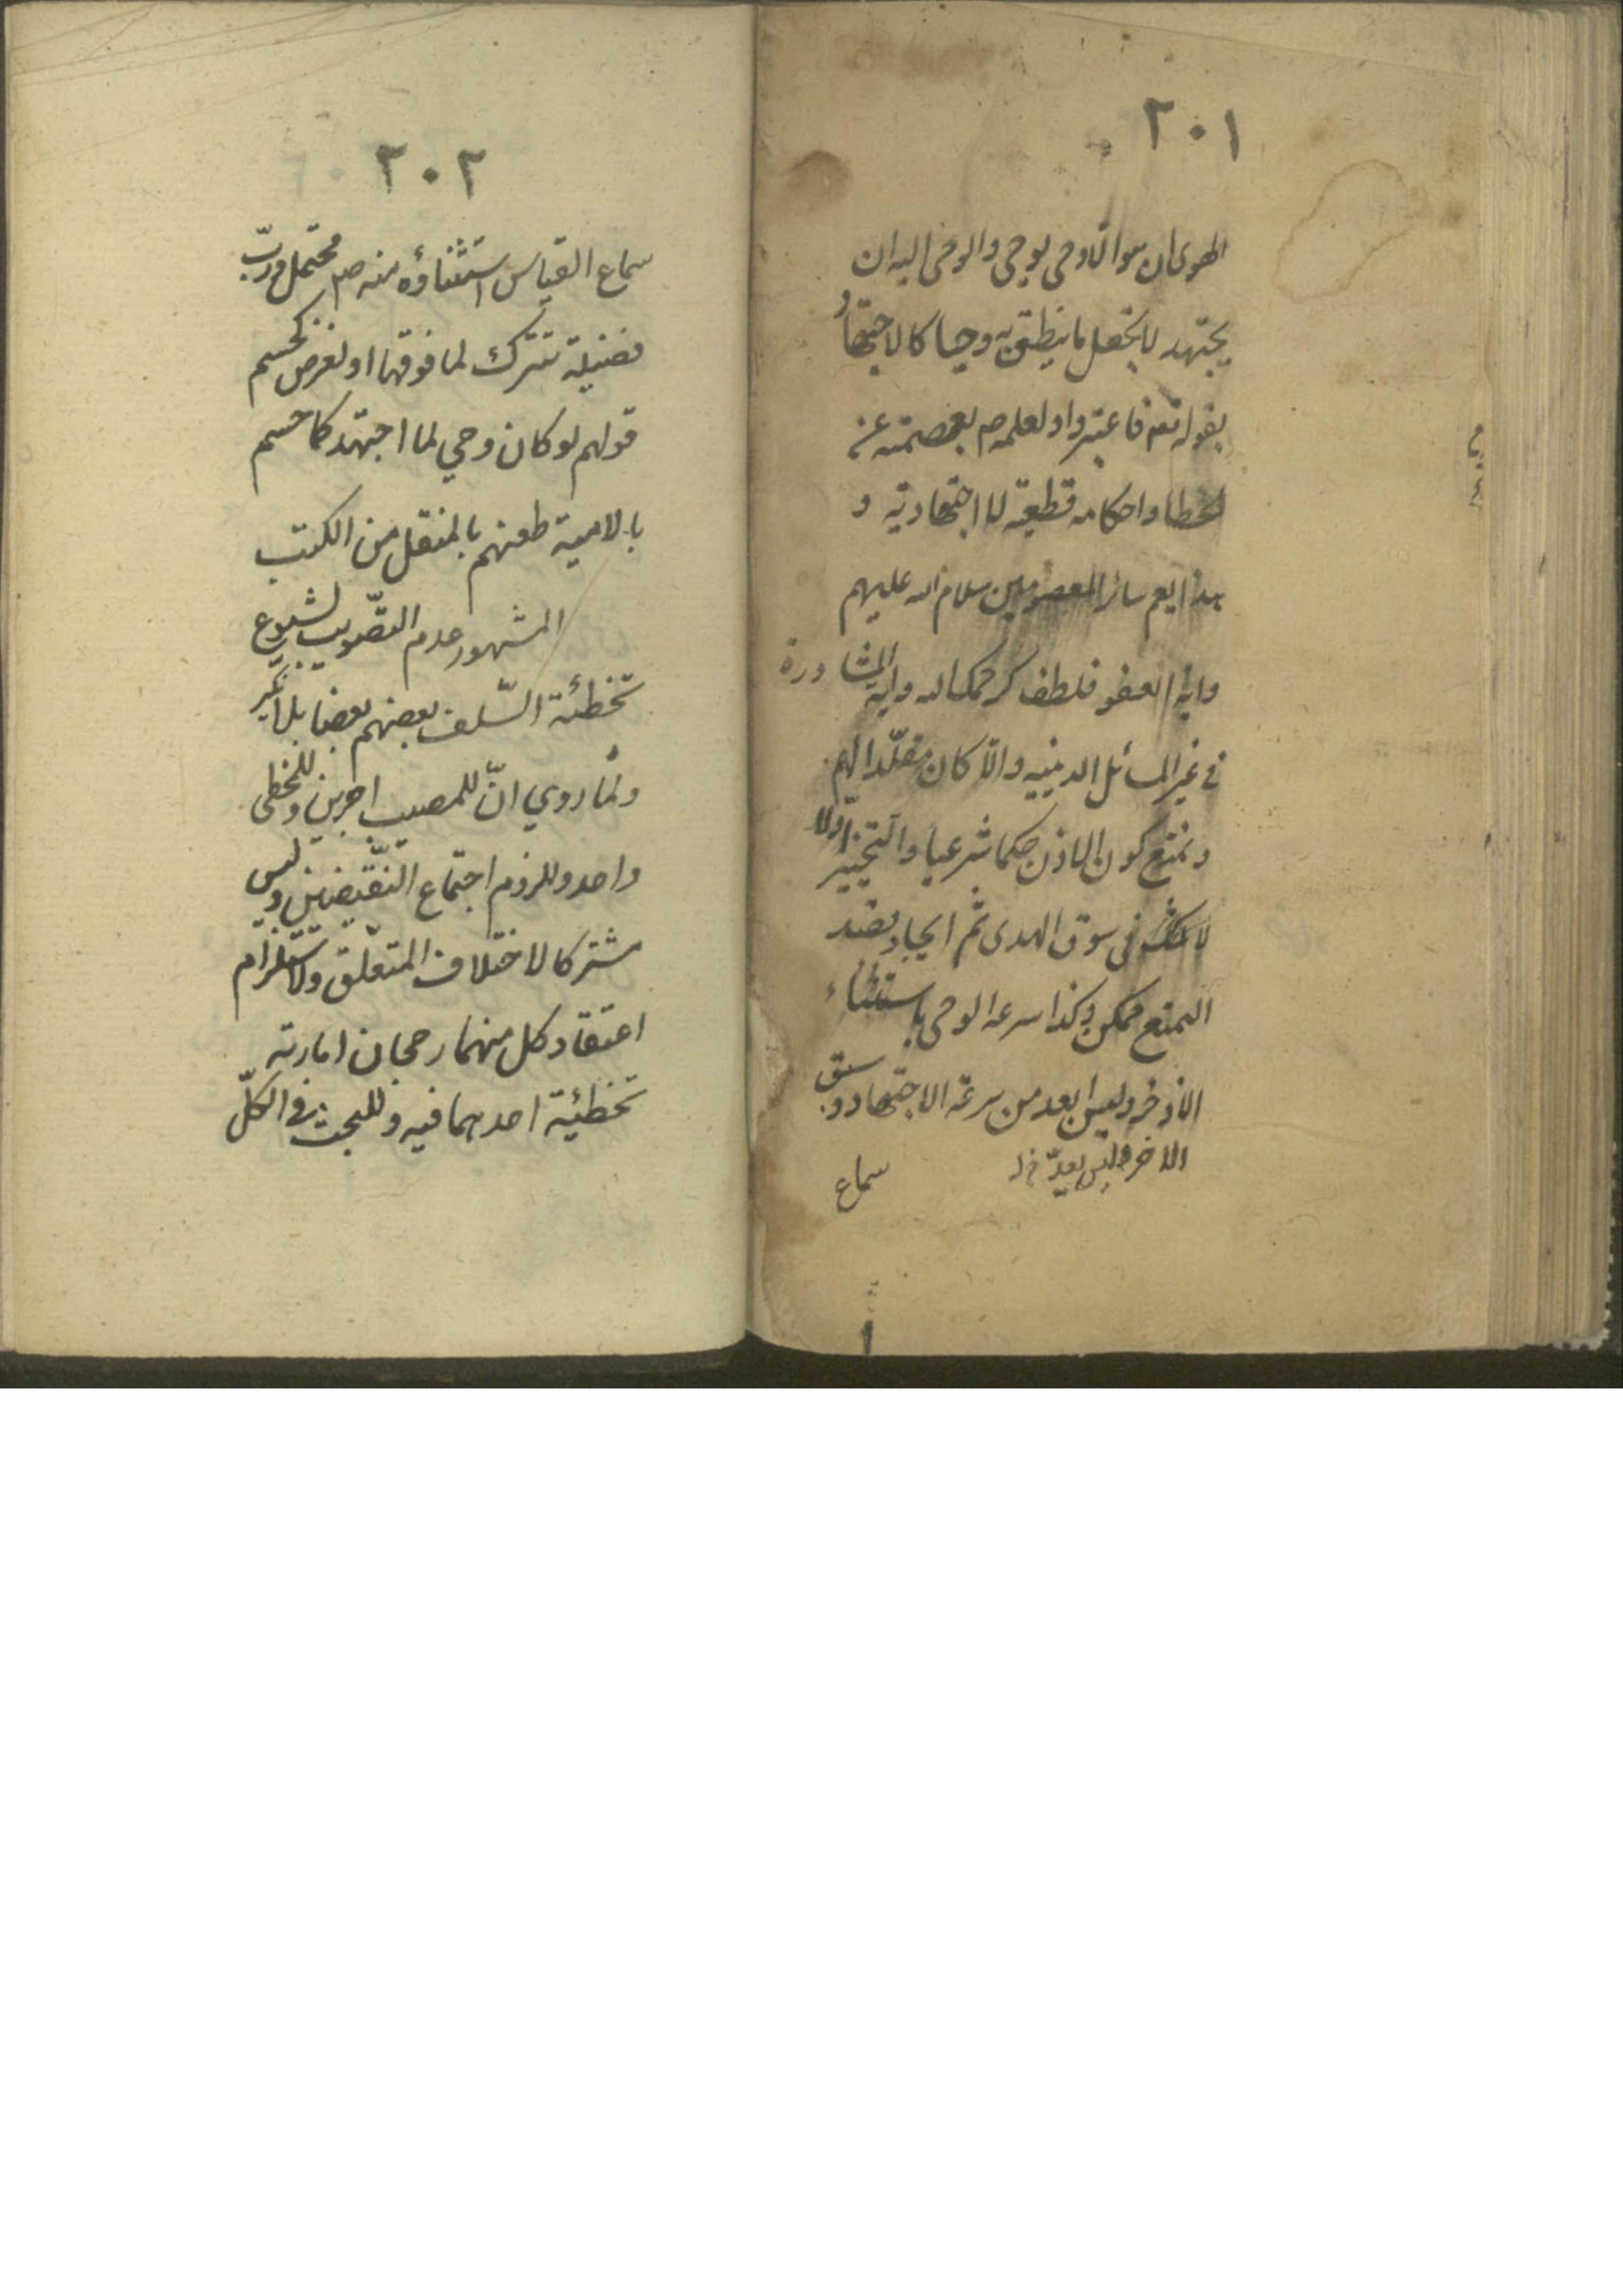 ٢٠١
الهوى ان هو الا وحى يوحى والوحى اليه ان
يجتهد لا يجعل ما ينطق به وحيا كالاجتهاد
بقوله تعه فاعتبروا ولعلمه ص بعصمته عن
الخطا واحكامه قطعية لا اجتهادية و
هذا يعم سائر المعصومين سلام الله عليهم
واية العفو فلطف كرحمك الله واية المشاورة
فى غير المسائل الدينيه والا كان مقلّدا لهم
ونمنع كون الاذن حكما شرعيا والتخيير اوّلا
لا فى سوق الهدى ثم ايجاد بضد
التمتع ممكن وكذا سرعه الوحى باستثناء
الاذخر وليس ابعد من سرعة الاجتهاد وسبق
الاخر
سماع
٢٠٢
سماع القياس استثناؤه منه ص محتمل وربّ
فضيلة تترك لما فوقها او لغرض كحسم
قولهم لو كان وحي لما اجتهد كما حسم
بالامية طعنهم بالمنقل من الكتب
المشهور عدم التصويب لشيوع
تخطئة السّلف بعضهم بعضا بلا نكير
ولما روي انّ للمصيب اجرين وللمخطى
واحد وللزوم اجتماع النقيضين وليس
مشتركا لاختلاف المتعلّق ولاستلزام
اعتقاد كل منهما رجحان امارته
تخطئية احدهما فيه وللبحث فى الكلّ